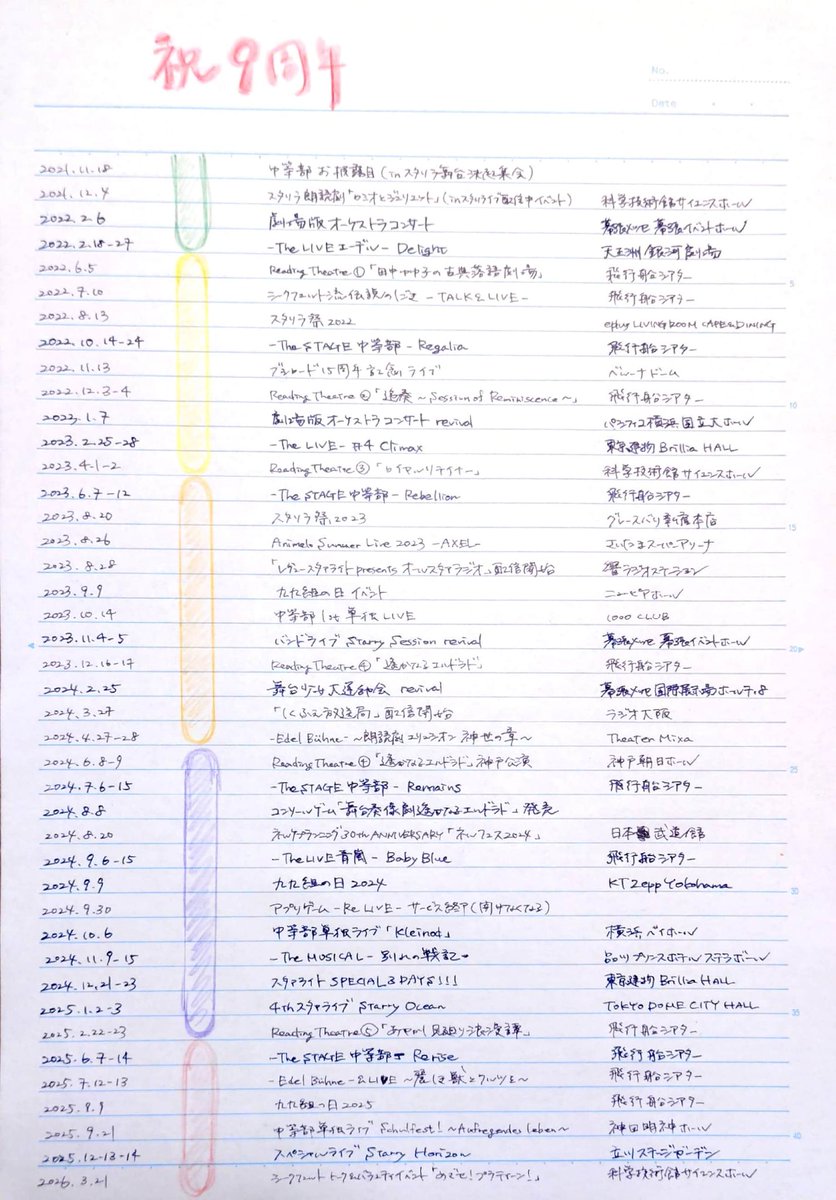 祝9周年
No.
Date
2021.11.18 中等部お披露目(inスタリラ舞台決起集会)
2021.12.4 スタリラ朗読劇「ロミオとジュリエット」(inスタリライブ配信中イベント) 科学技術館サイエンスホール
2022.2.6 劇場版オーケストラコンサート 幕張メッセ 幕張イベントホール
2022.2.18-27 -The LIVE エーデル- Delight 天王洲 銀河劇場
2022.6.5 Reading Theatre①「田中ゆゆ子の古典落語劇場」 飛行船シアター 5
2022.7.10 シークフェルト流 伝説の -TALK & LIVE- 飛行船シアター
2022.8.13 スタリラ祭2022 eplus LIVING ROOM CAFE & DINING
2022.10.14-24 -The STAGE 中等部- Regalia 飛行船シアター
2022.11.13 ブシロード15周年記念ライブ ベルーナドーム
2022.12.3-4 Reading Theatre②「追奏 ~Session of Reminiscence~」 飛行船シアター 10
2023.1.7 劇場版オーケストラコンサート revival パシフィコ横浜 国立大ホール
2023.2.25-28 -The LIVE- #4 Climax 東京建物 Brillia HALL
2023.4.1-2 Reading Theatre③「ロイヤルリテイナー」 科学技術館サイエンスホール
2023.6.7-12 -The STAGE 中等部- Rebellion 飛行船シアター
2023.8.20 スタリラ祭2023 グレースバリ新宿本店 15
2023.8.26 Animelo Summer Live 2023 -AXEL- さいたまスーパーアリーナ
2023.8.28 「レヴュースタァライト presents オールスタァラジオ」配信開始 響ラジオステーション
2023.9.9 九九組の日イベント ニューピアホール
2023.10.14 中等部 1st 単独 LIVE 1000 CLUB
2023.11.4-5 バンドライブ Starry Session revival 幕張メッセ 幕張イベントホール 20
2023.12.16-17 Reading Theatre④「遙かなるエルドラド」 飛行船シアター
2024.2.25 舞台少女大運動会 revival 幕張メッセ 国際展示場ホール7・8
2024.3.27 「しくふぇ放送局」配信開始 ラジオ大阪
2024.4.27-28 -Edel Bühne- ~朗読劇 エリュシオン 神世の章~ Theater Mixa
2024.6.8-9 Reading Theatre④「遙かなるエルドラド」神戸公演 神戸朝日ホール 25
2024.7.6-15 -The STAGE 中等部- Remains 飛行船シアター
2024.8.8 コンソールゲーム「舞台奏像劇 遙かなるエルドラド」発売
2024.8.20 ネルケプランニング 30th ANNIVERSARY「ネルフェス2024」 日本武道館
2024.9.6-15 -The LIVE 青嵐- Baby Blue 飛行船シアター
2024.9.9 九九組の日 2024 KT Zepp Yokohama 30
2024.9.30 アプリゲーム -Re LIVE- サービス終了(開けなくなる)
2024.10.6 中等部単独ライブ「Kleinod」 横浜ベイホール
2024.11.9-15 -The MUSICAL- 別れの戦記 品川プリンスホテル ステラボール
2024.12.21-23 スタァライト SPECIAL 3 DAYS!!! 東京建物 Brillia HALL
2025.1.2-3 4thスタァライブ Starry Ocean TOKYO DOME CITY HALL 35
2025.2.22-23 Reading Theatre⑤「あやかし見廻り浪漫譚」 飛行船シアター
2025.6.7-14 -The STAGE 中等部- Rerise 飛行船シアター
2025.7.12-13 -Edel Bühne- & LIVE ~麗しき獣とワルツを~ 飛行船シアター
2025.9.9 九九組の日 2025 飛行船シアター
2025.9.21 中等部単独ライブ Schulfest! ~Aufregendes leben~ 神田明神ホール 40
2025.12.13-14 スペシャルライブ Starry Horizon 立川ステージガーデン
2026.3.21 シークフェルト トーク&バラエティイベント「めざせ!プラティーン!」 科学技術館サイエンスホール